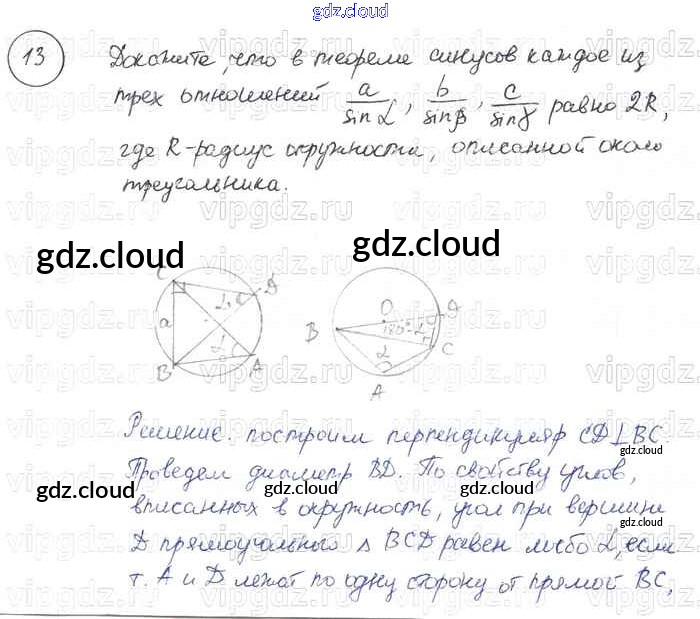 gdz.cloud
13 Докажите, что в теореме синусов каждое из
трех отношений a/sinα, b/sinβ, c/sinγ равно 2R,
где R-радиус окружности, описанной около
треугольника.
gdz.cloud gdz.cloud
C D a α α B A
O D B 180°-α C α A
Решение. построим перпендикуляр CD⊥BC.
gdz.cloud
Проведем диаметр BD. По свойству углов,
gdz.cloud gdz.cloud
вписанных в окружность, угол при вершине
gdz.cloud
D прямоугольного Δ BCD равен либо α, если
т. A и D лежат по одну сторону от прямой BC,
gdz.cloud